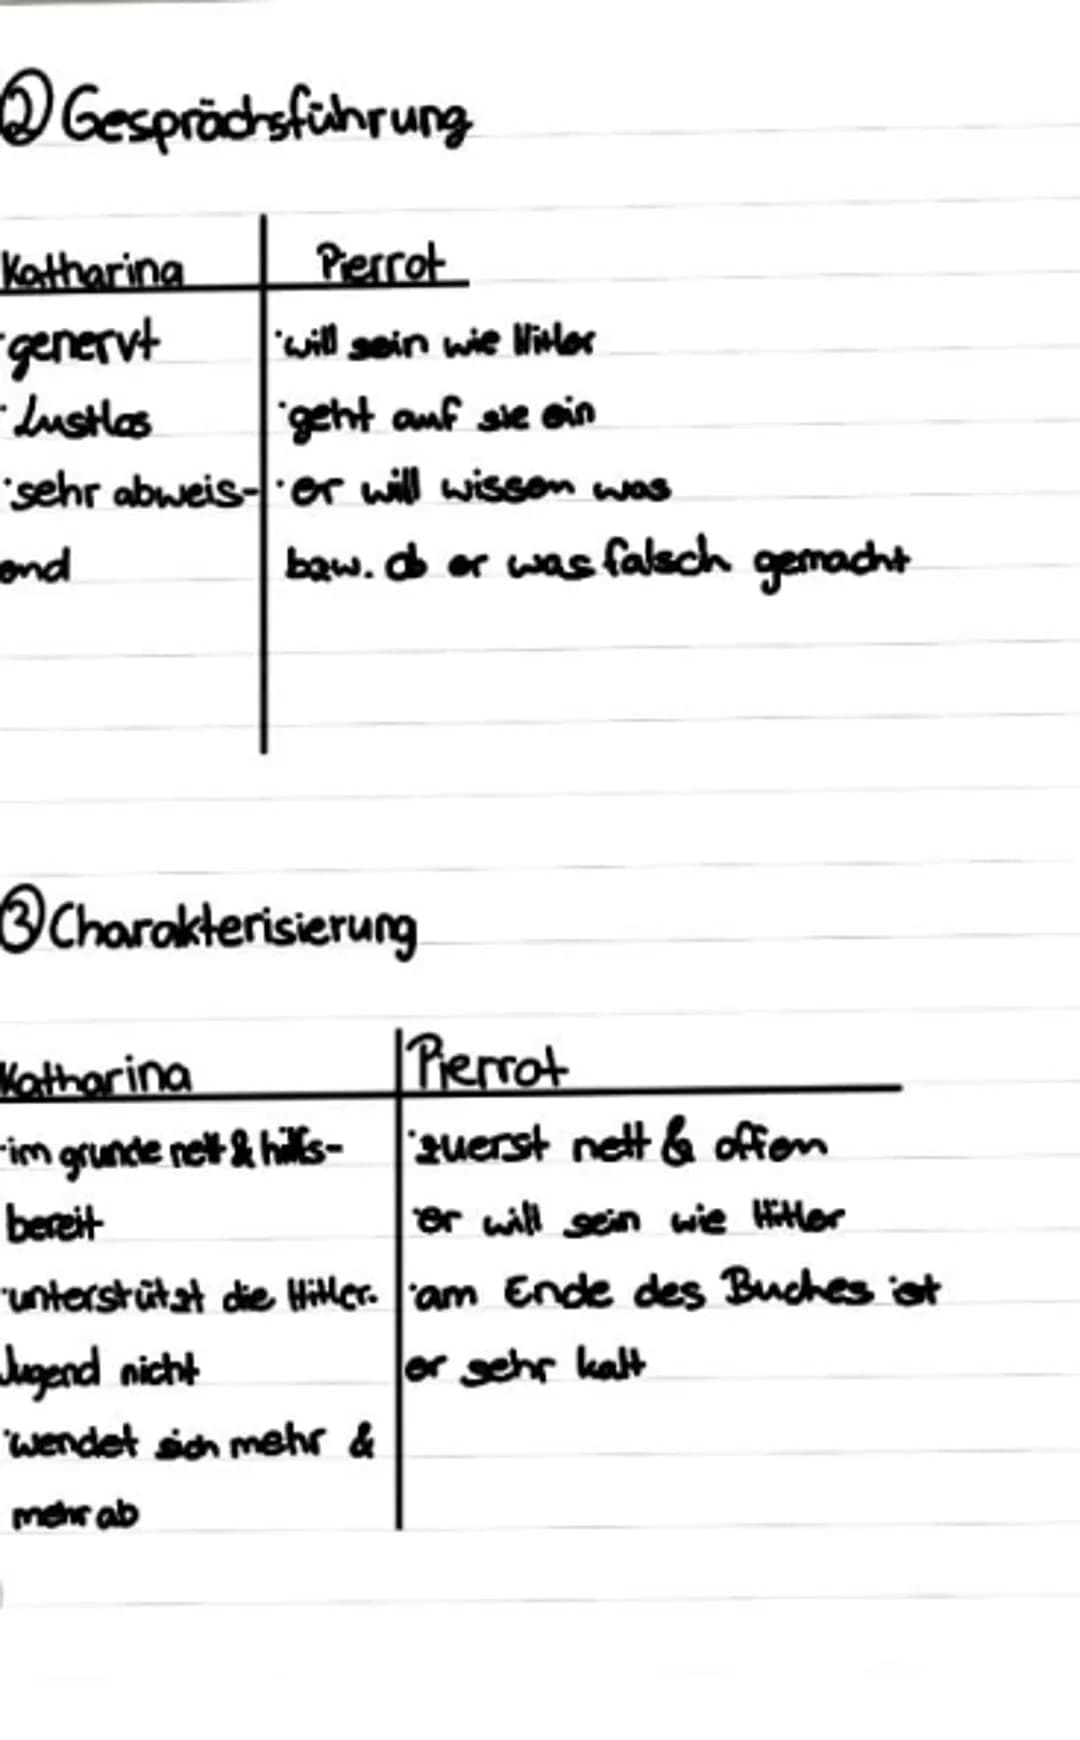 ② Gesprächsführung
Katharina Pierrot
·genervt ·will sein wie Hitler
·Lustlos ·geht auf sie ein
·sehr abweis- ·er will wissen was
end bzw. ob er was falsch gemacht
③ Charakterisierung
Katharina Pierrot
·im grunde nett & hilfs- ·zuerst nett & offen
bereit ·er will sein wie Hitler
·unterstützt die Hitler- ·am Ende des Buches ist
Jugend nicht er sehr kalt
·wendet sich mehr &
mehr ab